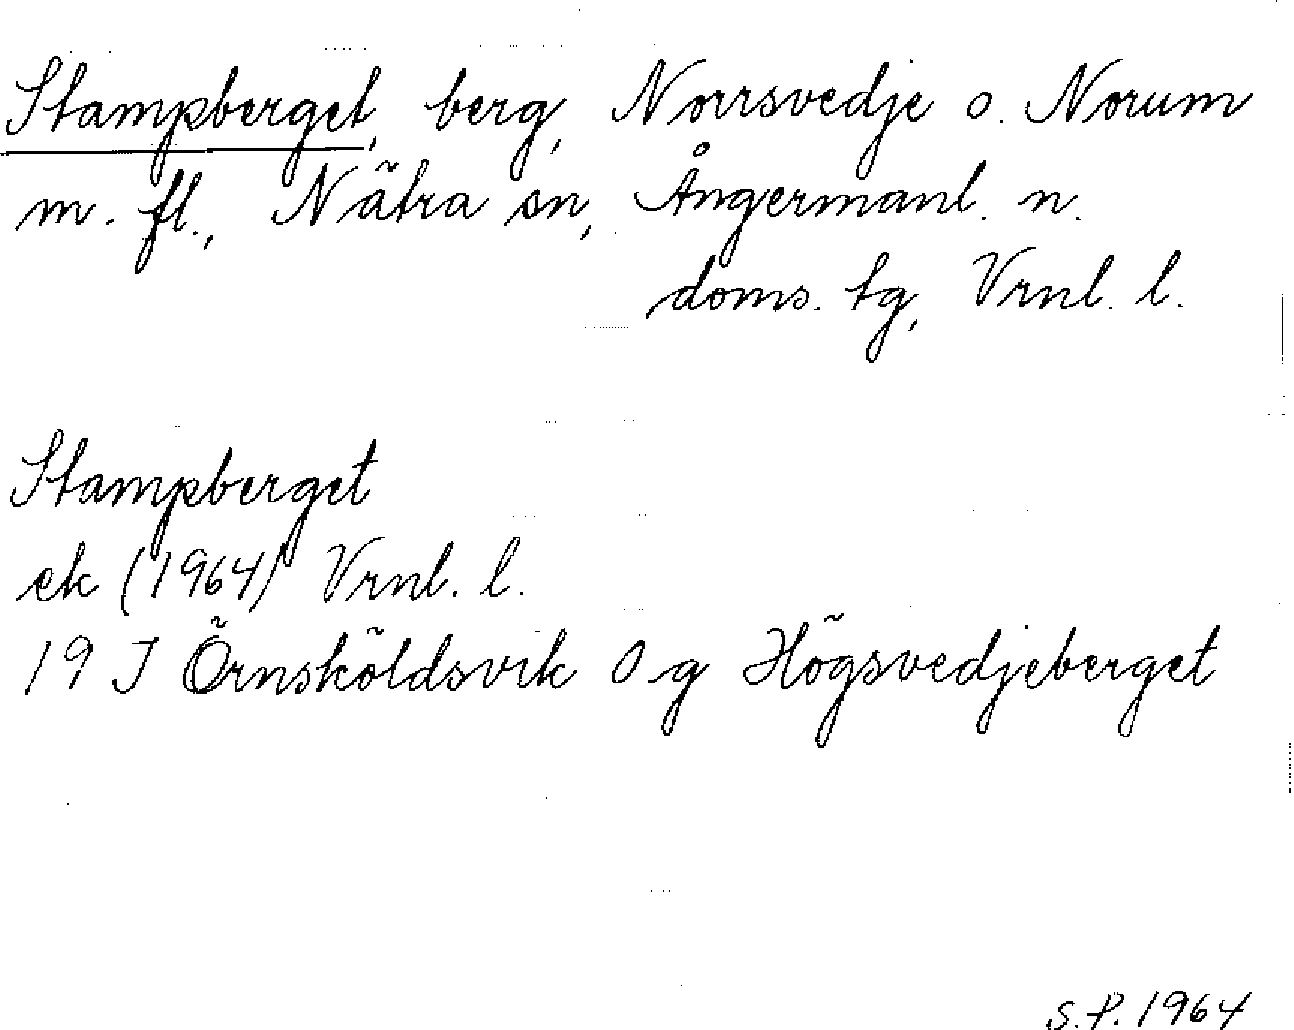 Stampberget, berg, Norrsvedje o. Norum
m. fl., Nätra sn, Ångermanl. n.
doms. tg, Vrnl. l.
Stampberget
ek (1964) Vrnl. l.
19 J Örnsköldsvik O g Högsvedjeberget
S.P. 1964